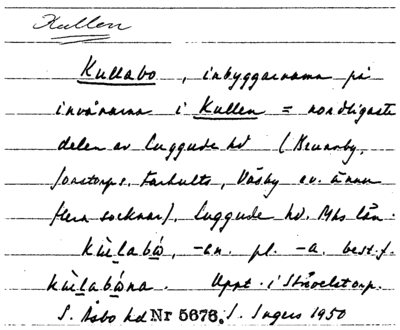 Kullen
Kullabo, inbyggarnamn på
invånarna i Kullen = nordligaste
delen av Luggude hd (Brunnby,
Jonstorps, Farhults, Väsby ev. ännu
flera socknar), Luggude hd. Mhs län.
-en. pl. -a. best. f.
Uppt. i Stråvelstorp.
S. Åsbo hd Nr 5676, I. Ingers 1950